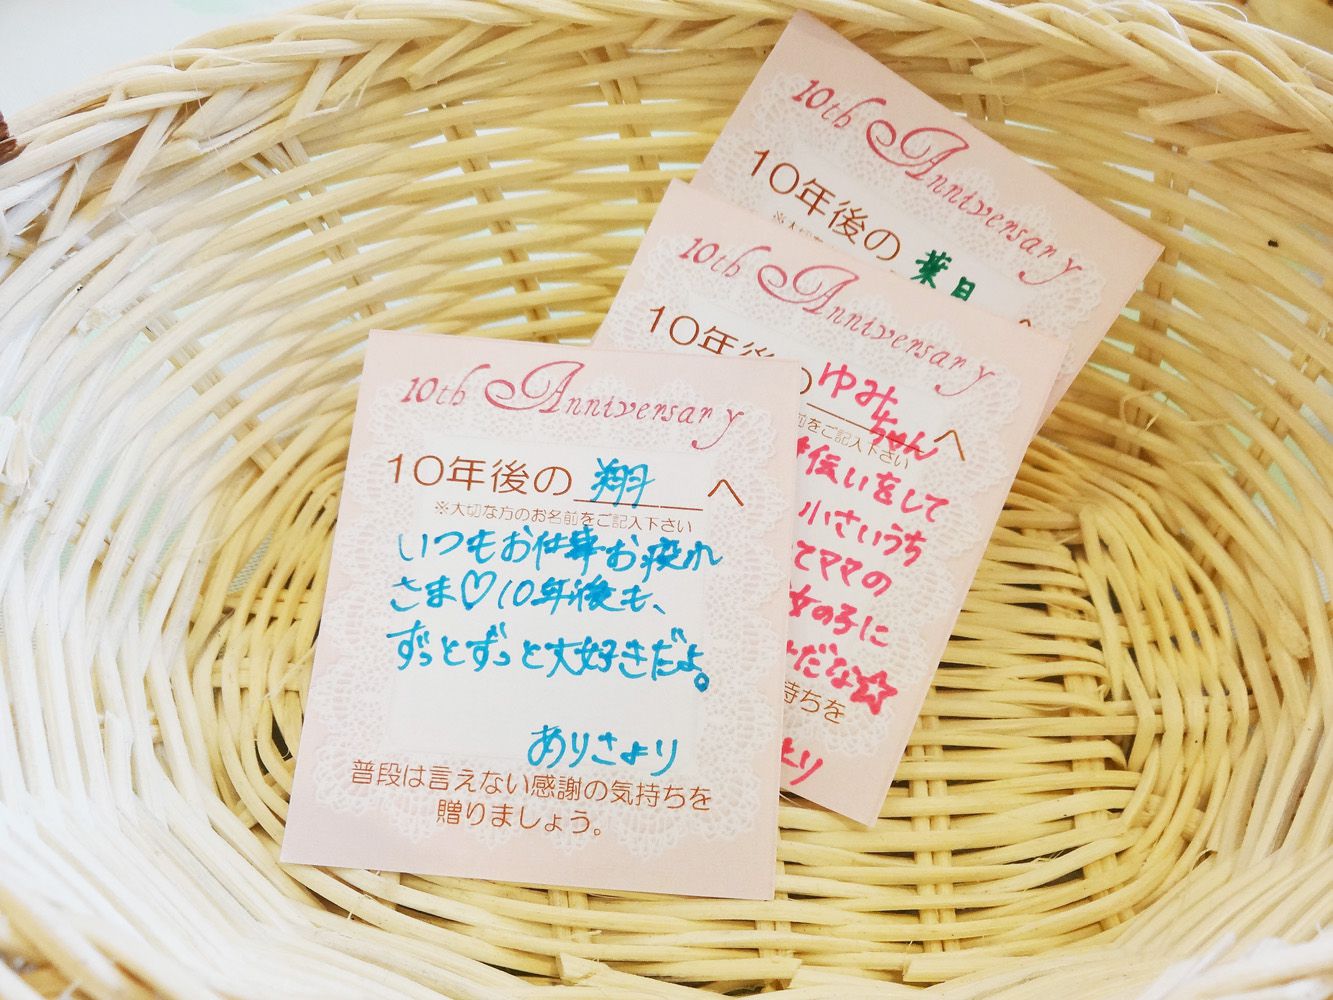 10th Anniversary
10年後の 翔 へ
※大切な方のお名前をご記入下さい
いつもお仕事お疲れ
さま♡10年後も、
ずっとずっと大好きだよ。
ありさより
普段は言えない感謝の気持ちを
贈りましょう。
10th Anniversary
10年後の ゆみ
ちゃん へ
前をご記入下さい
伝いをして
小さいうち
てママの
女の子に
だな☆
持ちを
より
10th Anniversary
10年後の 葉月 へ
※大切